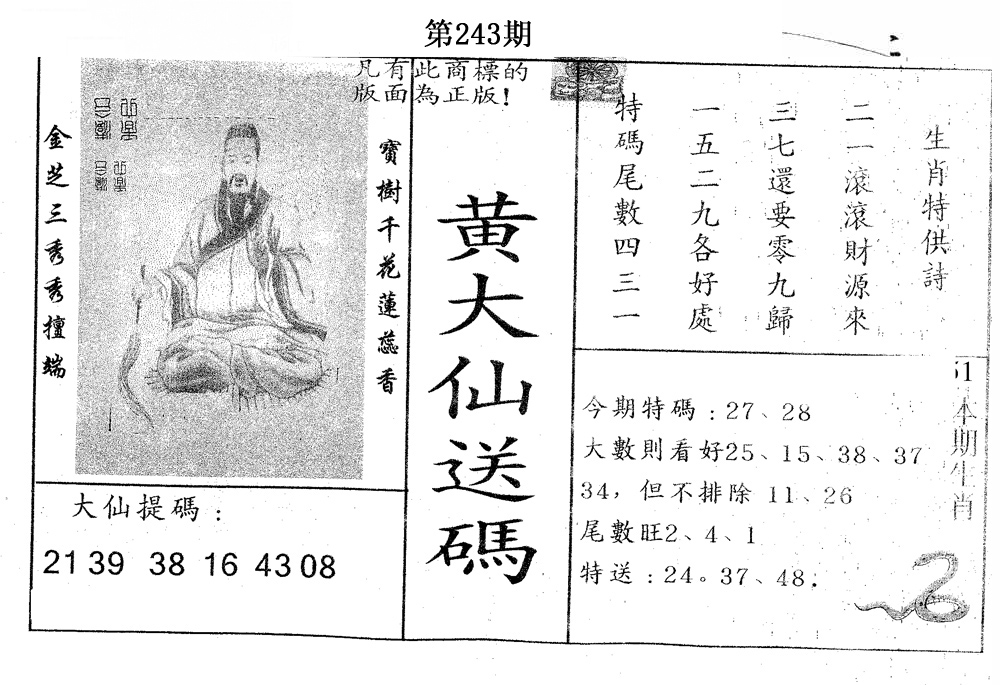 第243期
凡有此商標的
版面為正版!
金芝三秀秀擅端
寶樹千花蓮蕊香
大仙提碼：
21 39 38 16 43 08
黃大仙送碼
生肖特供詩
二一滾滾財源來
三七還要零九歸
一五二九各好處
特碼尾數四三一
今期特碼：27、28
大數則看好25、15、38、37
34，但不排除 11、26
尾數旺2、4、1
特送：24。37、48.
本期生肖